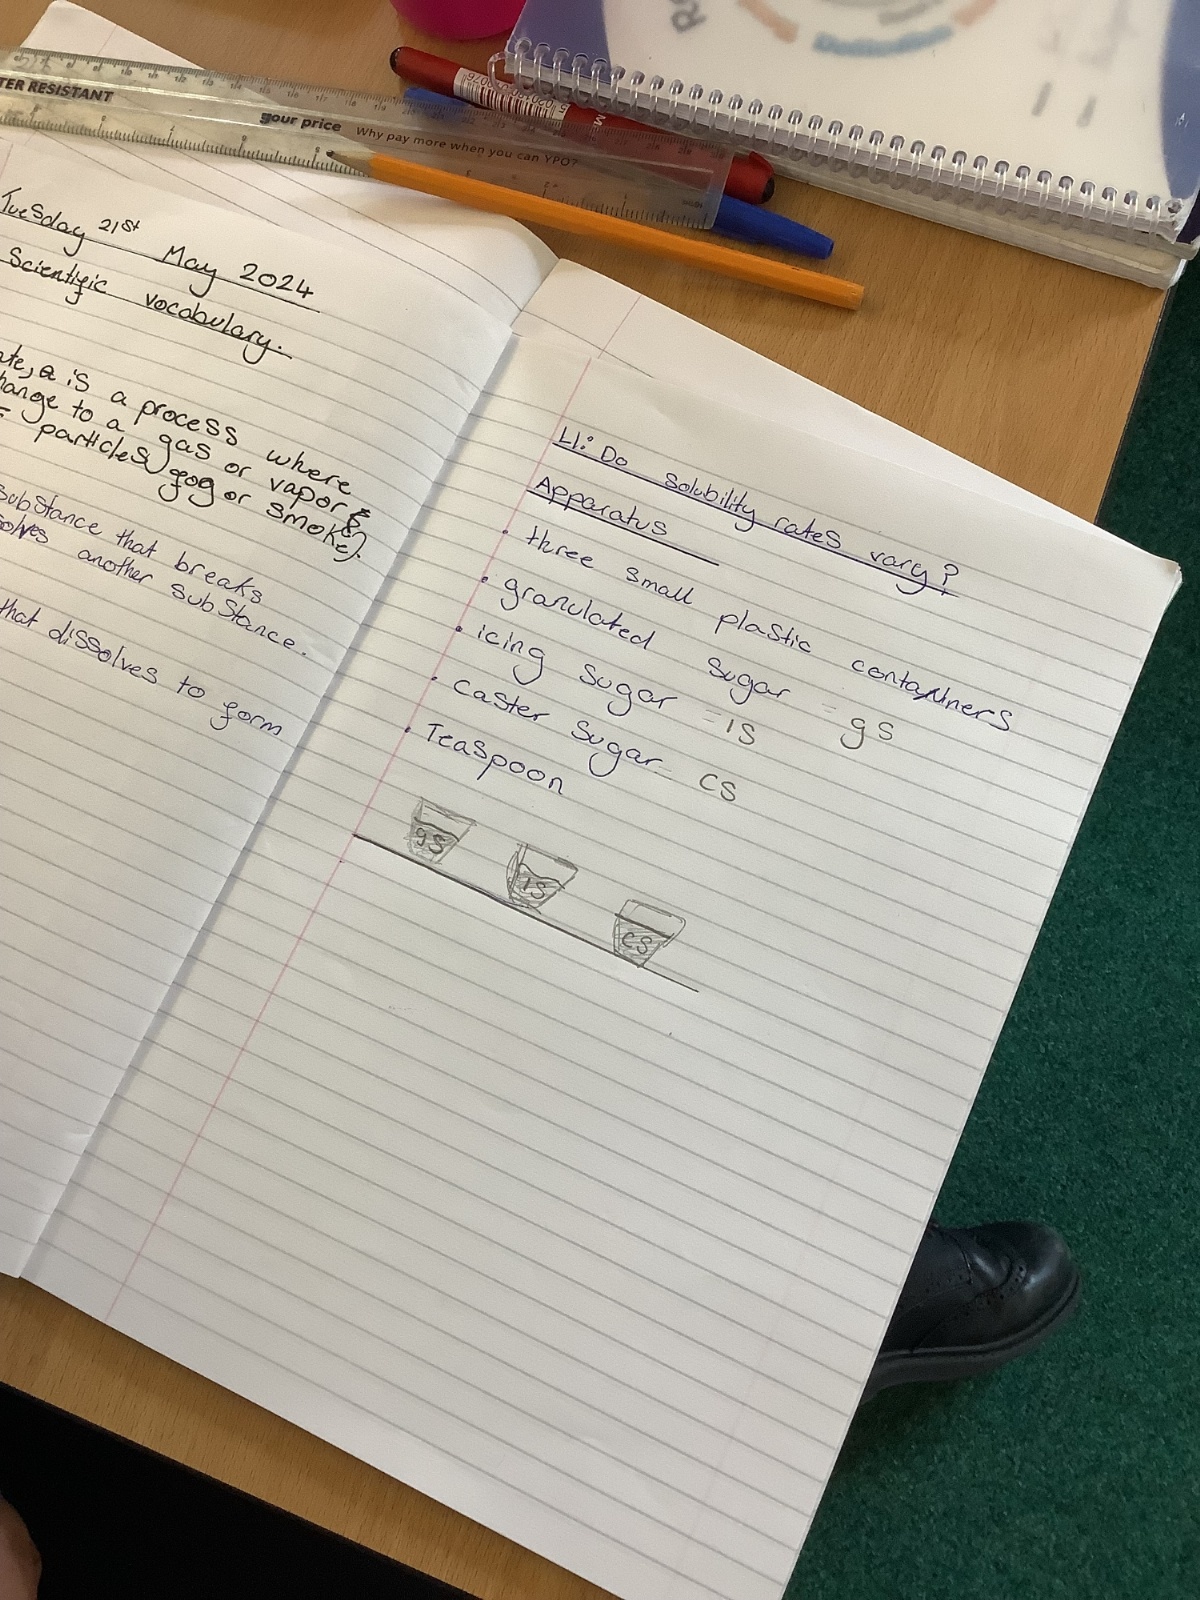 TER RESISTANT
your price Why pay more when you can YPO?
Tuesday 21st May 2024
Scientific vocabulary.
is a process where
hange to a gas or vapor
particles fog or smoke).
substance that breaks
solves another substance.
that dissolves to form
LI: Do solubility rates vary?
Apparatus
• three small plastic containers
• granulated sugar = gs
• icing sugar = is
• caster sugar = cs
• Teaspoon
gs
is
cs